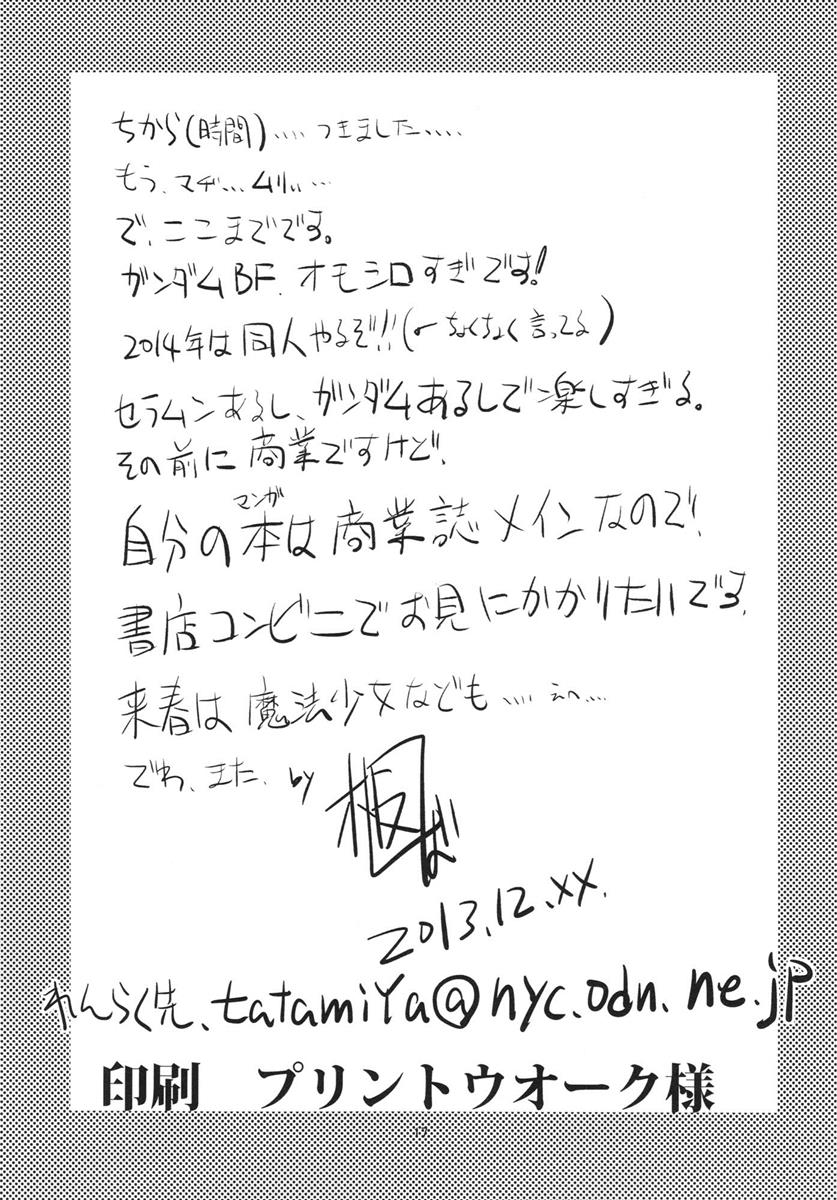 ちから(時間)‥‥つきました‥‥
もう、マヂ…ムリぃ…
で、ここまでです。
ガンダムBF、オモシロすぎです!
2014年は同人やるぞ!!(←ちょくちょく言ってる)
セラムンあるし、ガンダムあるしで楽しすぎる。
その前に商業ですけど、
マンガ
自分の本は商業誌メインなので!
書店コンビニでお見にかかりたいです、
来春は魔法少女なども‥‥えへ‥‥
でわ、また、by
2013.12.XX.
れんらく先、tatamiYa@nyc.odn.ne.jp
印刷 プリントウオーク様
17